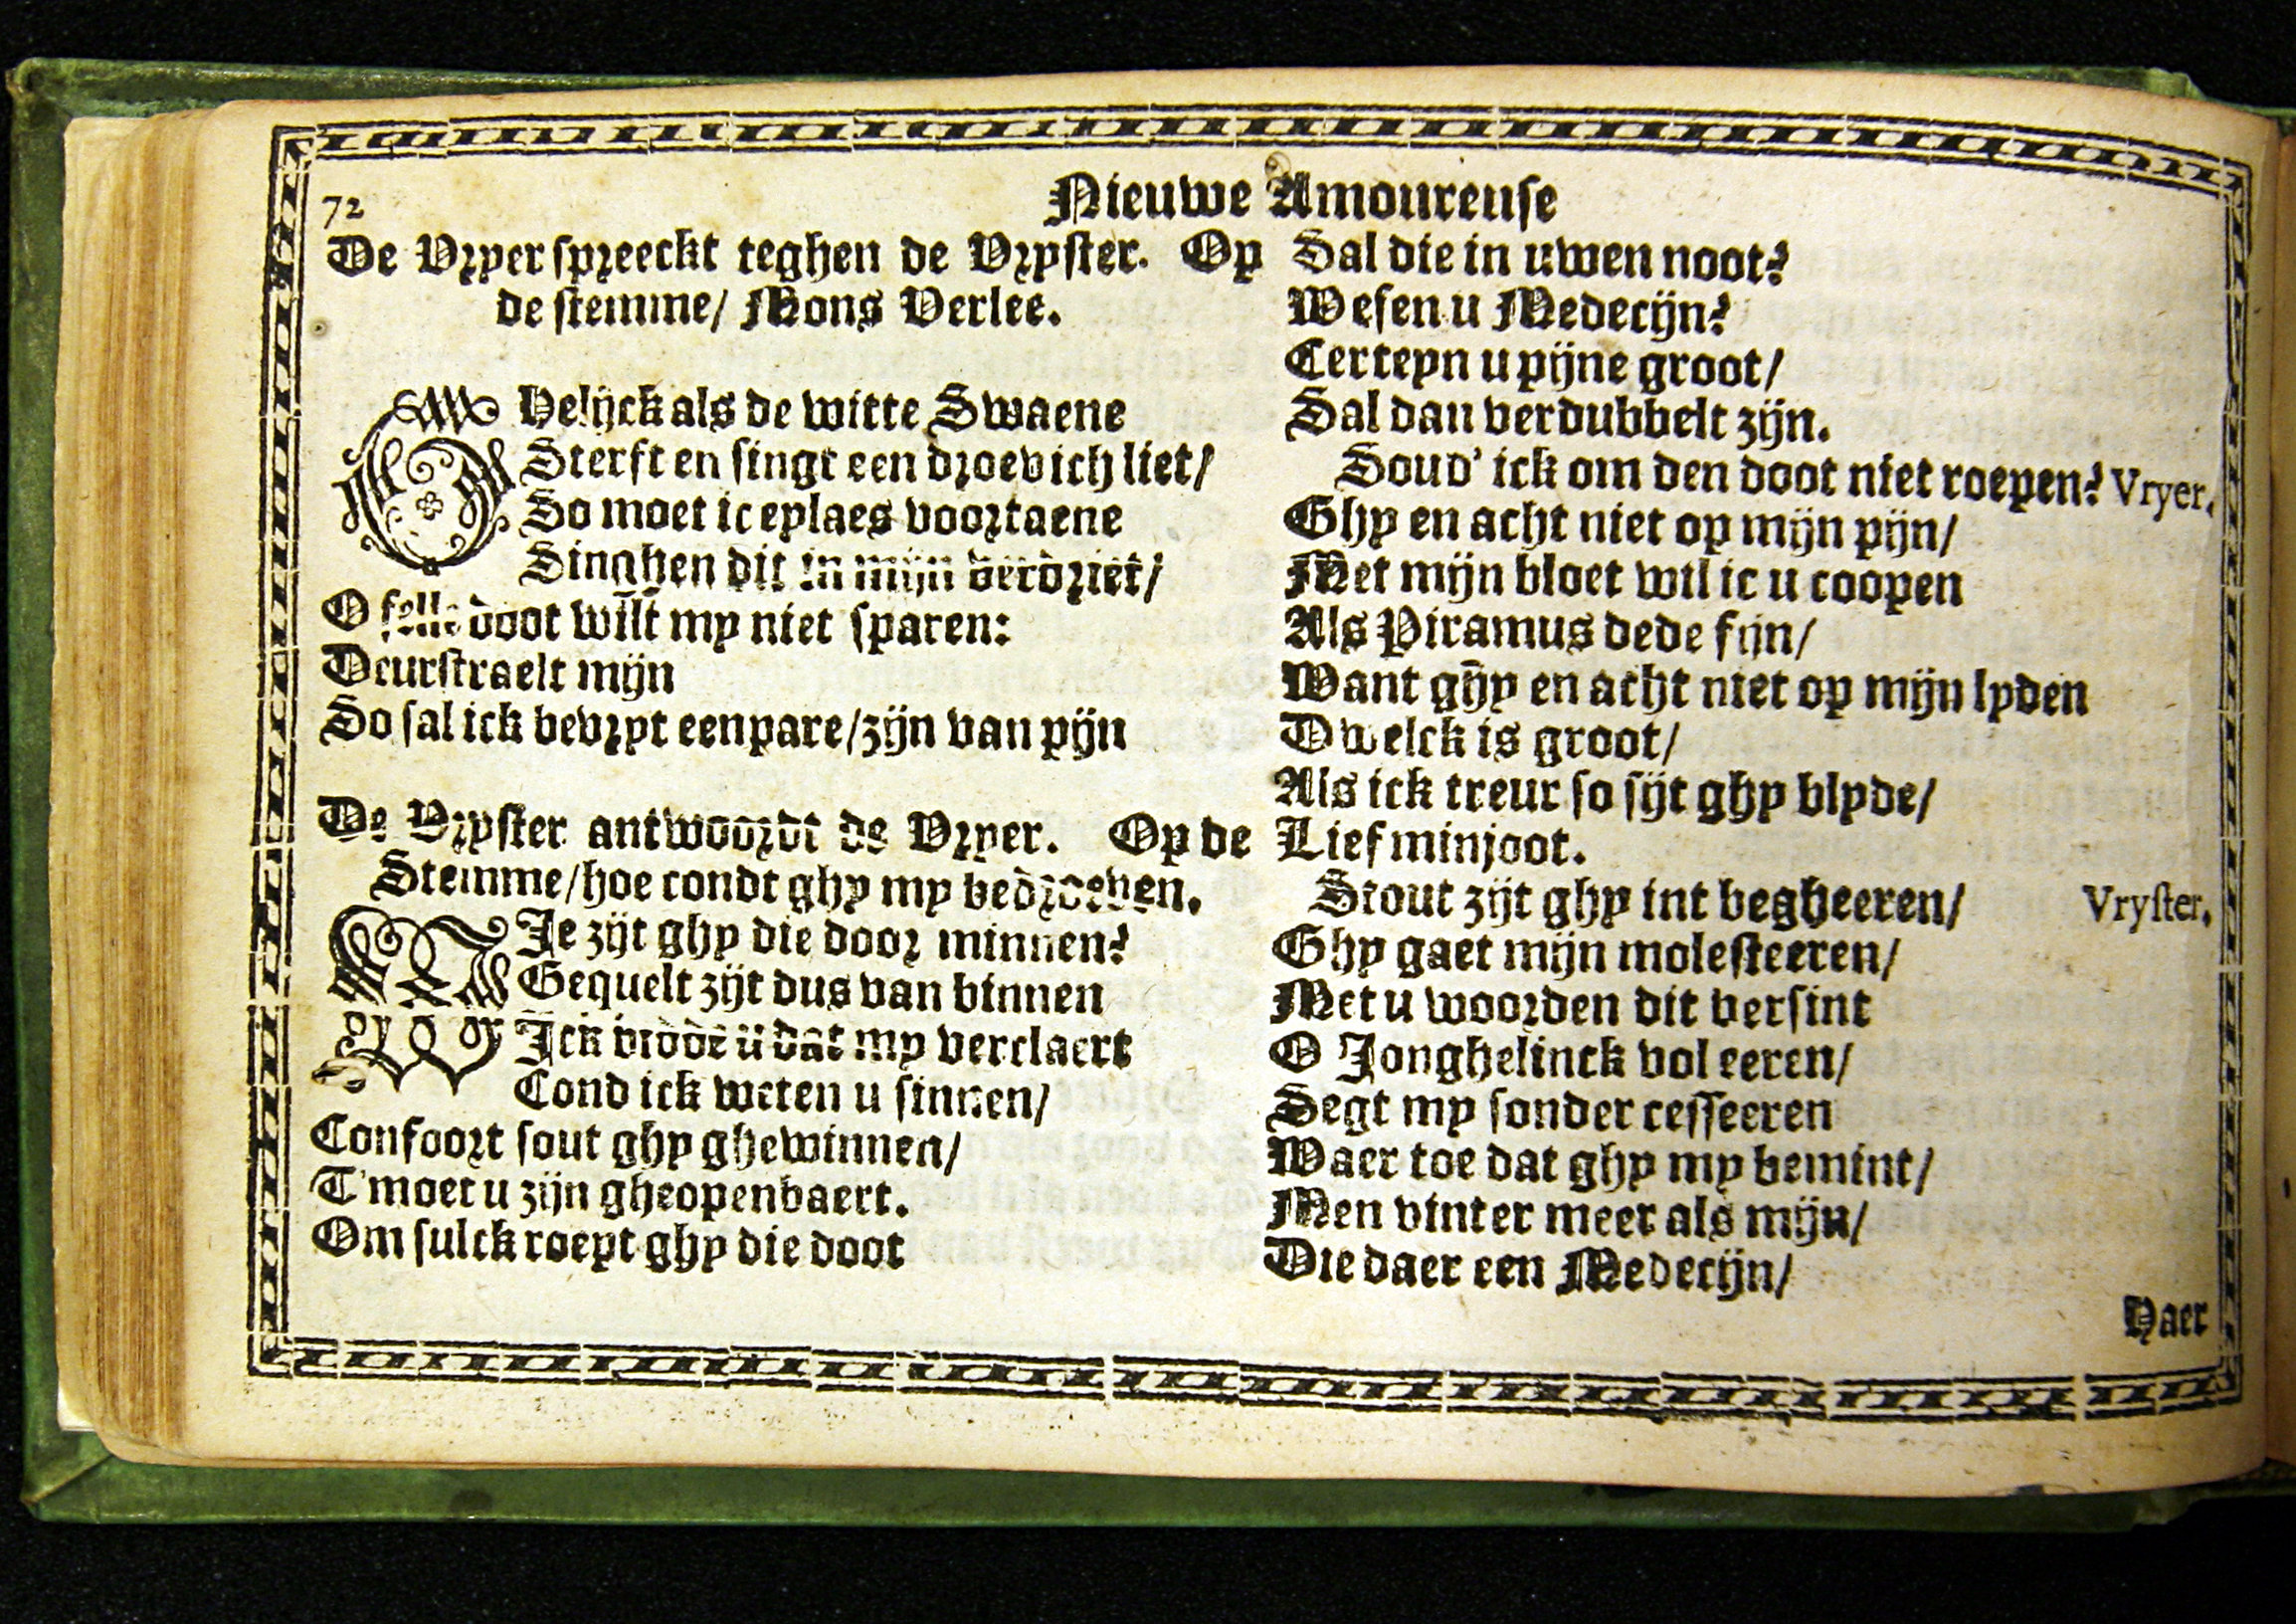 72
Nieuwe Amoureuse
De Vryer spreeckt teghen de Vryster. Op
de stemme/ Mons Verlee.
GHelijck als de witte Swaene
Sterft en singt een droevich liet/
So moet ic eylaes voortaene
Singhen dit in mijn verdriet/
O felle doot wilt my niet sparen:
Deurstraelt mijn
So sal ick bevryt eenpare/zijn van pijn
De Vryster antwoordt de Vryer. Op de
Stemme/hoe condt ghy my bedroeven.
WIe zijt ghy die door minnen?
Gequelt zijt dus van binnen
Ick bidde u dat my verclaert
Cond ick weten u sinnen/
Confoort sout ghy ghewinnen/
T'moet u zijn gheopenbaert.
Om sulck roept ghy die doot
Sal die in uwen noot?
Wesen u Medecijn?
Certeyn u pijne groot/
Sal dan verdubbelt zijn.
Soud' ick om den doot niet roepen? Vryer.
Ghy en acht niet op mijn pijn/
Met mijn bloet wil ic u coopen
Als Piramus dede fijn/
Want ghy en acht niet op mijn lyden
Dwelck is groot/
Als ick treur so sijt ghy blyde/
Lief minjoot.
Stout zijt ghy int begheeren/ Vryster.
Ghy gaet mijn molesteeren/
Met u woorden dit versint
O Jonghelinck vol eeren/
Segt my sonder cesseeren
Waer toe dat ghy my bemint/
Men vinter meer als mijn/
Die daer een Medecijn/
Haer